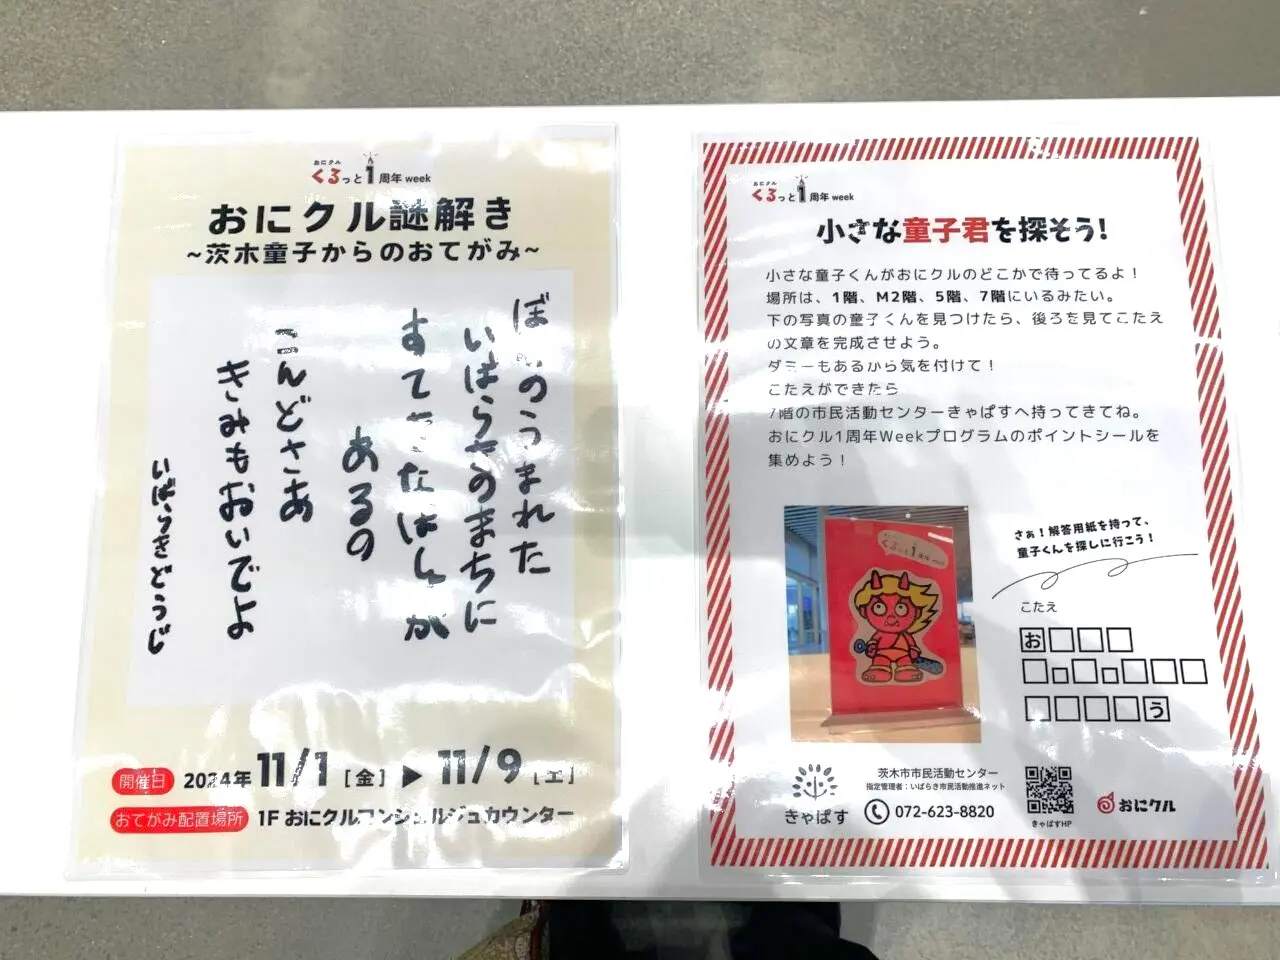 おにクル
くるっと1周年 week
おにクル謎解き
~茨木童子からのおてがみ~
のうまれた
いばらきのまちに
すて
あるの
こんどさあ
きみもおいでよ
いばらきどうじ
開催日 2024年 11/1 [金] ▶ 11/9 [土]
おてがみ配置場所 1F おにクルコンシェルジュカウンター
おにクル
くるっと1周年 week
小さな童子君を探そう!
小さな童子くんがおにクルのどこかで待ってるよ!
場所は、1階、M2階、5階、7階にいるみたい。
下の写真の童子くんを見つけたら、後ろを見てこたえ
の文章を完成させよう。
ダミーもあるから気を付けて!
こたえができたら
7階の市民活動センターきゃぱすへ持ってきてね。
おにクル1周年Weekプログラムのポイントシールを
集めよう!
くるっと1周年 week
さぁ!解答用紙を持って、
童子くんを探しに行こう!
こたえ
お
う
きゃぱす
茨木市市民活動センター
指定管理者:いばらき市民活動推進ネット
072-623-8820
きゃぱすHP
おにクル